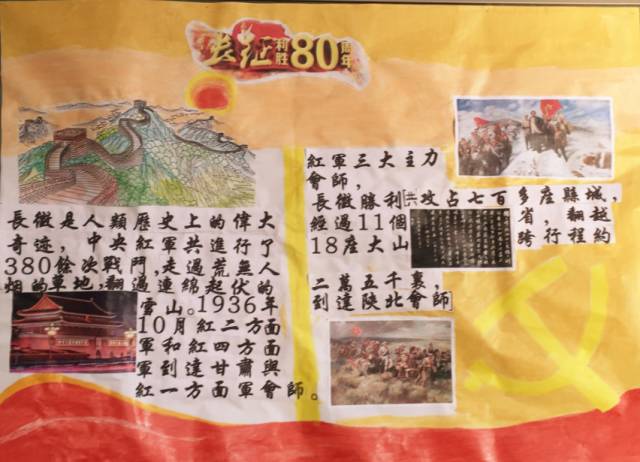 长征利胜80周年
長徵是人類歷史上的偉大
奇迹，中央紅軍共進行了
380餘次戰鬥，走過荒無人
烟的草地，翻過連綿起伏的
雪山。1936年
10月紅二方面
軍和紅四方面
軍到達甘肅與
紅一方面軍會師。
紅軍三大主力
會師，
長徵勝利共攻占七百多座縣城，
經過11個省，翻越
18座大山跨行程約
二萬五千裏，
到達陝北會師